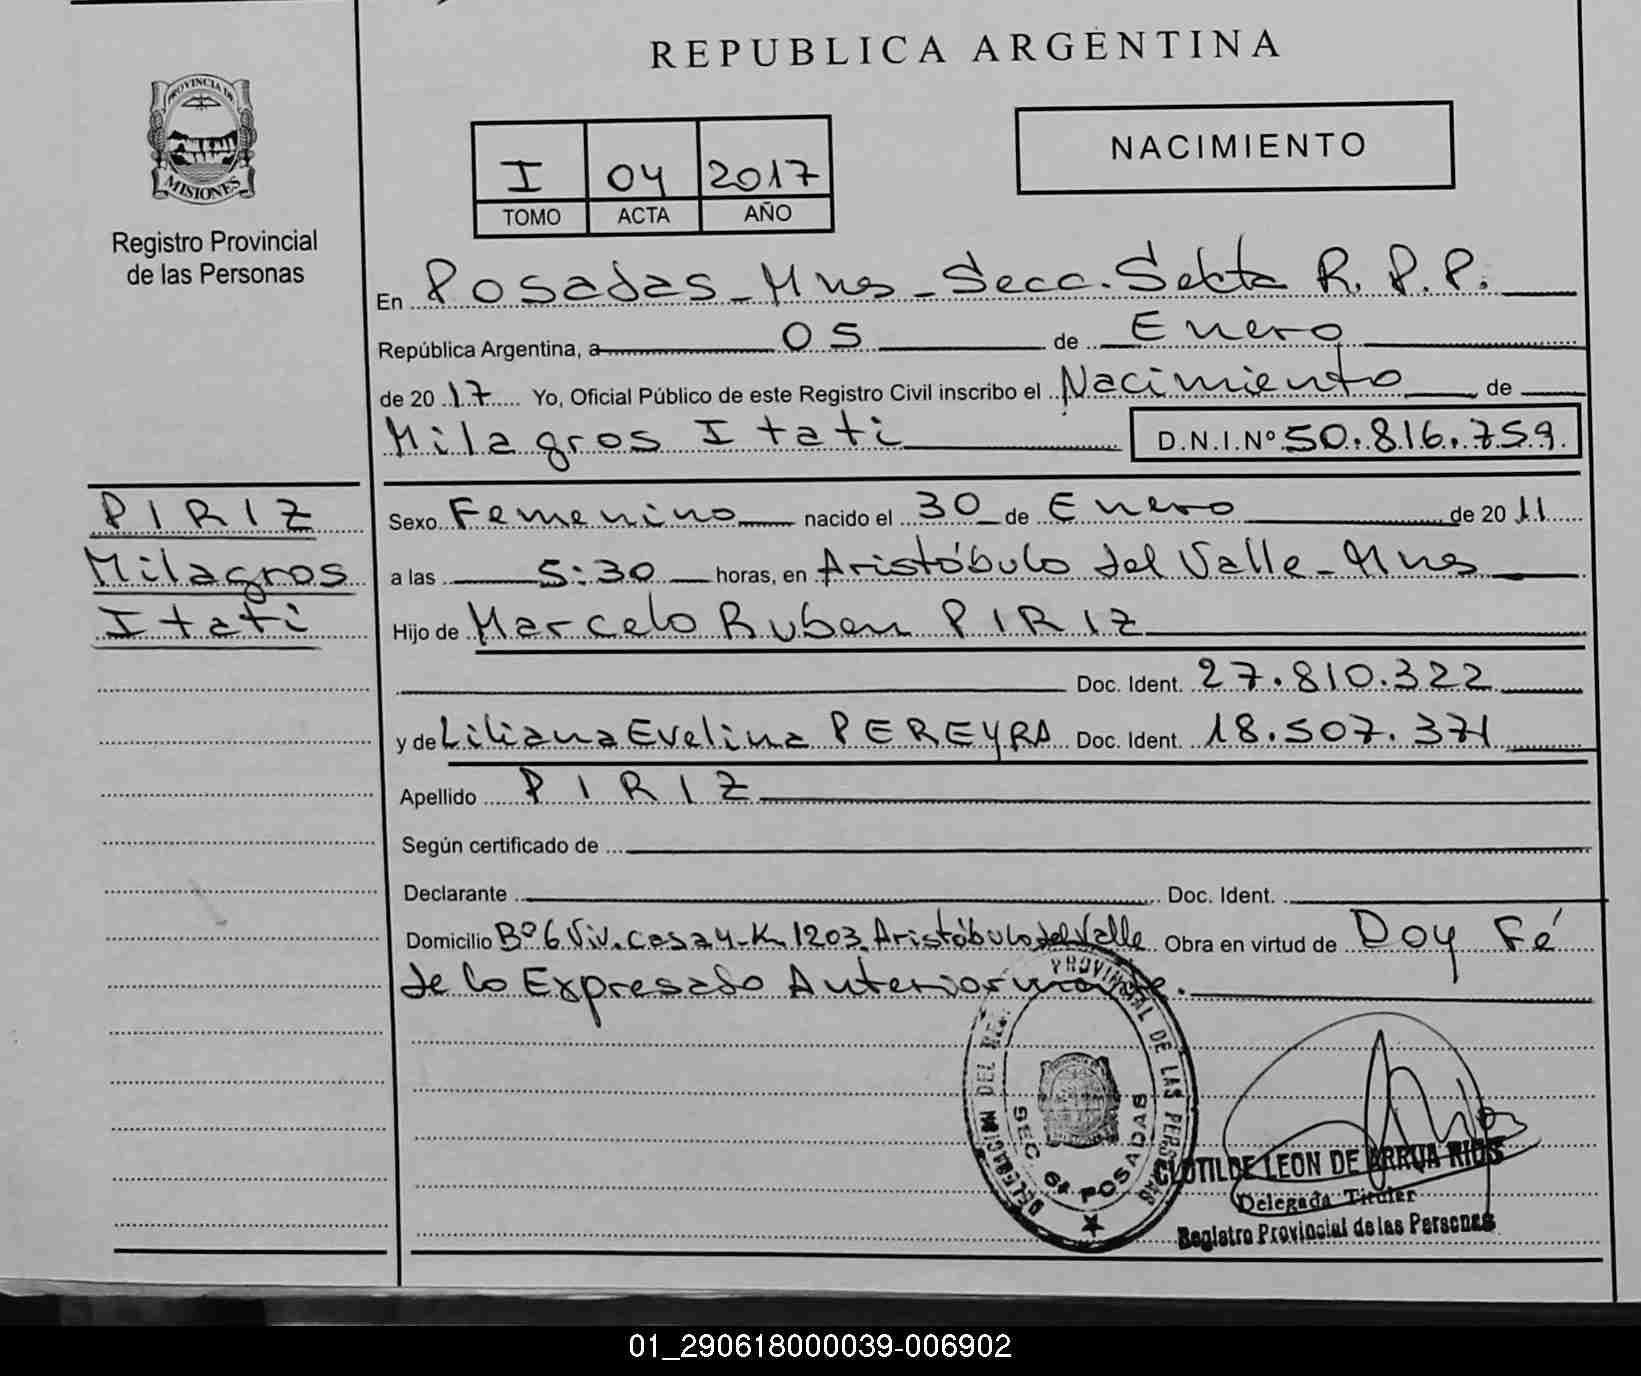 REPUBLICA ARGENTINA
PROVINCIA DE
MISIONES
Registro Provincial
de las Personas
I 04 2017
TOMO ACTA AÑO
NACIMIENTO
En Posadas - Mnes - Secc. Sekta R.P.P.
República Argentina, a 05 de Enero
de 2017 Yo, Oficial Público de este Registro Civil inscribo el Nacimiento de
Milagros Itati D.N.I.Nº 50.816.759.
PIRIZ
Milagros
Itati
Sexo Femenino nacido el 30 de Enero de 2011
a las 5:30 horas, en Aristóbulo del Valle - Mnes
Hijo de Marcelo Ruben PIRIZ
Doc. Ident. 27.810.322
y de Liliana Evelina PEREYRA Doc. Ident. 18.507.371
Apellido PIRIZ
Según certificado de
Declarante Doc. Ident.
Domicilio Bº 6 Viv. Casa 4-K. 1203. Aristóbulo del Valle Obra en virtud de Doy Fé
de lo Expresado Anteriormente.
DELEGACION DEL REG. PROVINCIAL DE LAS PERSONAS
SEC 6ª POSADAS
CLOTILDE LEON DE ARRUA RIOS
Delegada Titular
Registro Provincial de las Personas
01_290618000039-006902